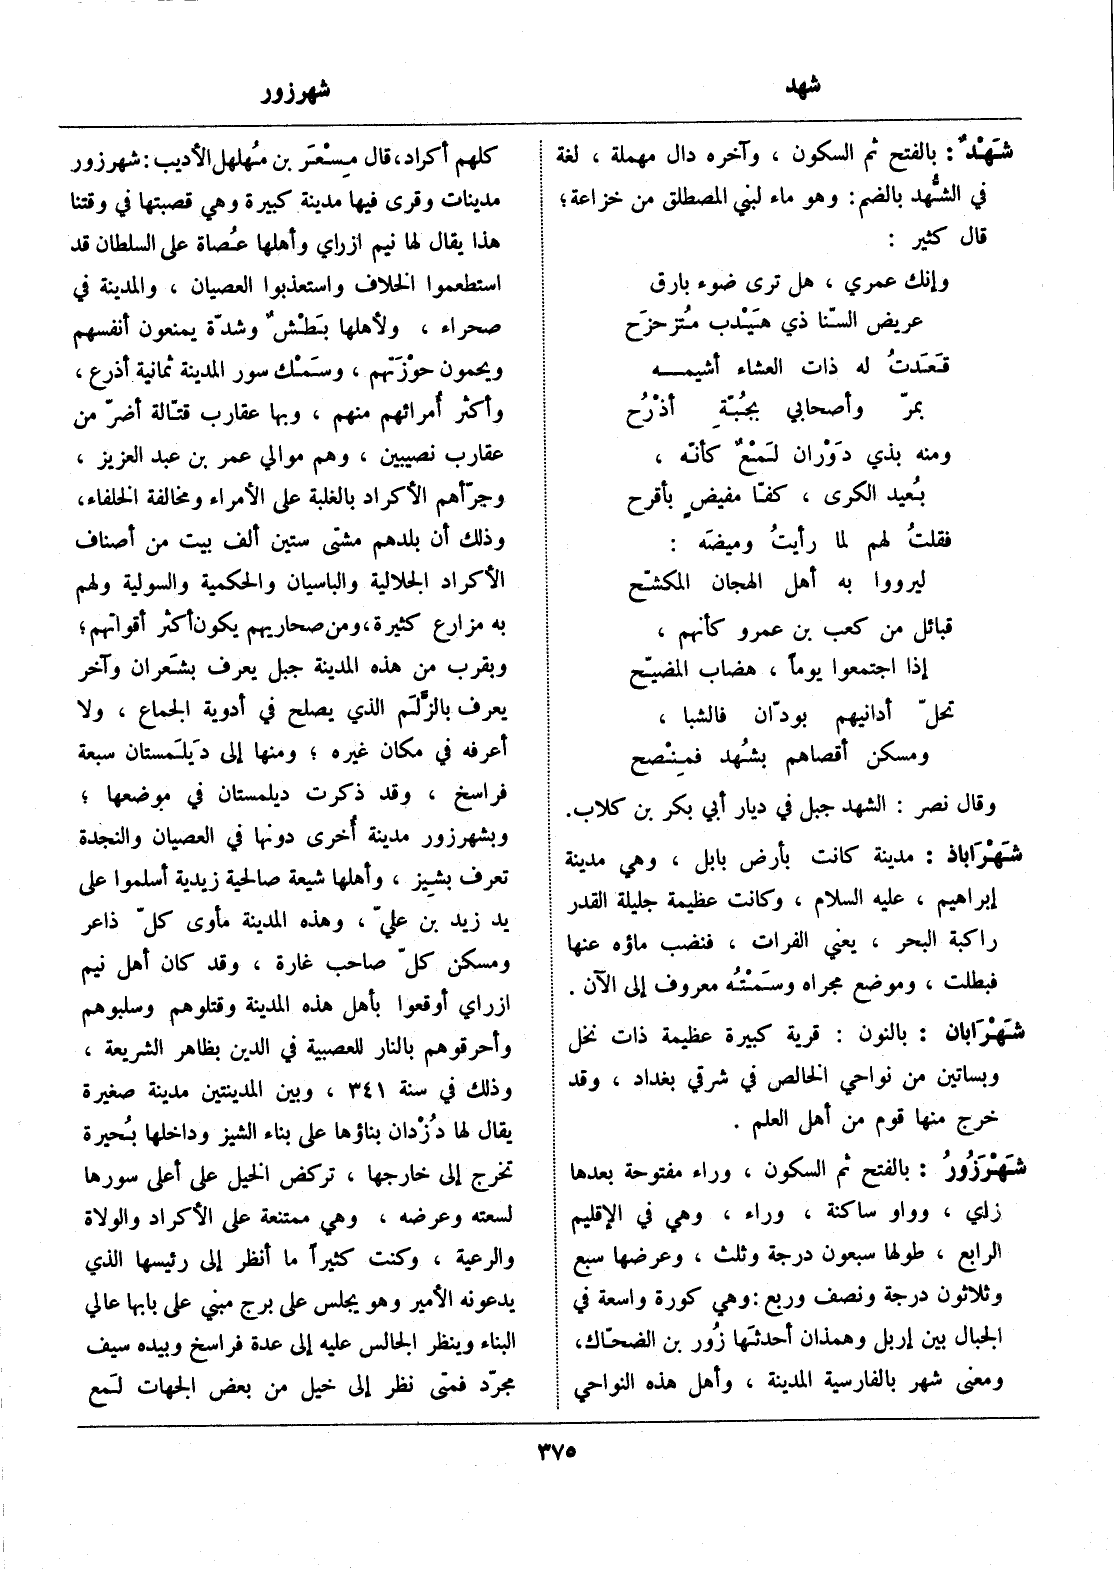 شهد
شهرزور
شَهْدٌ : بالفتح ثم السكون ، وآخره دال مهملة ، لغة
في الشُّهد بالضم : وهو ماء لبني المصطلق من خزاعة ؛
قال كثير :
وإنك عمري ، هل ترى ضوء بارق
عريض السّنا ذي هَيْدب مُتزحزَح
قَعَدَتُ له ذات العشاء أشيمــه
بمرّ وأصحابي بجُبّةِ أذْرُح
ومنه بذي دَوْران لَمْعٌ كأنّه ،
بُعيد الكرى ، كفّا مفيضٍ بأقرح
فقلتُ لهم لما رأيتُ وميضَه :
ليرووا به أهل الهجان المكشّح
قبائل من كعب بن عمرو كأنهم ،
إذا اجتمعوا يوماً ، هضاب المضيّح
تحلّ أدانيهم بودّان فالشبا ،
ومسكن أقصاهم بشُهد فمِنْصح
وقال نصر : الشهد جبل في ديار أبي بكر بن كلاب.
شَهْرَاباذ : مدينة كانت بأرض بابل ، وهي مدينة
إبراهيم ، عليه السلام ، وكانت عظيمة جليلة القدر
راكبة البحر ، يعني الفرات ، فنضب ماؤه عنها
فبطلت ، وموضع مجراه وسَمْتُه معروف إلى الآن .
شَهْرَابان : بالنون : قرية كبيرة عظيمة ذات نخل
وبساتين من نواحي الخالص في شرقي بغداد ، وقد
خرج منها قوم من أهل العلم .
شَهْرَزُورُ : بالفتح ثم السكون ، وراء مفتوحة بعدها
زاي ، وواو ساكنة ، وراء ، وهي في الإقليم
الرابع ، طولها سبعون درجة وثلث ، وعرضها سبع
وثلاثون درجة ونصف وربع : وهي كورة واسعة في
الجبال بين إربل وهمذان أحدثَها زُور بن الضحّاك،
ومعنى شهر بالفارسية المدينة ، وأهل هذه النواحي
كلهم أكراد، قال مِسْعَر بن مُهلهل الأديب : شهرزور
مدينات وقرى فيها مدينة كبيرة وهي قصبتها في وقتنا
هذا يقال لها نيم ازراي وأهلها عُصاة على السلطان قد
استطعموا الخلاف واستعذبوا العصيان ، والمدينة في
صحراء ، ولأهلها بَطْشٌ وشدّة يمنعون أنفسهم
ويحمون حوْزَتهم ، وسَمْك سور المدينة ثمانية أذرع ،
وأكثر أُمرائهم منهم ، وبها عقارب قتّالة أضرّ من
عقارب نصيبين ، وهم موالي عمر بن عبد العزيز ،
وجرّأهم الأكراد بالغلبة على الأمراء ومخالفة الخلفاء،
وذلك أن بلدهم مشتى ستين ألف بيت من أصناف
الأكراد الجلالية والباسيان والحكمية والسولية ولهم
به مزارع كثيرة، ومن صحاريهم يكون أكثر أقواتهم ؛
وبقرب من هذه المدينة جبل يعرف بشَعران وآخر
يعرف بالزَّلَم الذي يصلح في أدوية الجماع ، ولا
أعرفه في مكان غيره ؛ ومنها إلى دَيلَمستان سبعة
فراسخ ، وقد ذكرت ديلمستان في موضعها ؛
وبشهرزور مدينة أُخرى دونها في العصيان والنجدة
تعرف بشِيز ، وأهلها شيعة صالحية زيدية أسلموا على
يد زيد بن عليّ ، وهذه المدينة مأوى كلّ ذاعر
ومسكن كلّ صاحب غارة ، وقد كان أهل نيم
ازراي أوقعوا بأهل هذه المدينة وقتلوهم وسلبوهم
وأحرقوهم بالنار للعصبية في الدين بظاهر الشريعة ،
وذلك في سنة ٣٤١ ، وبين المدينتين مدينة صغيرة
يقال لها دُزْدان بناؤها على بناء الشيز وداخلها بُحيرة
تخرج إلى خارجها ، تركض الخيل على أعلى سورها
لسعته وعرضه ، وهي ممتنعة على الأكراد والولاة
والرعية ، وكنت كثيراً ما أنظر إلى رئيسها الذي
يدعونه الأمير وهو يجلس على برج مبني على بابها عالي
البناء وينظر الجالس عليه إلى عدة فراسخ وبيده سيف
مجرّد فمتى نظر إلى خيل من بعض الجهات لَمع
٣٧٥